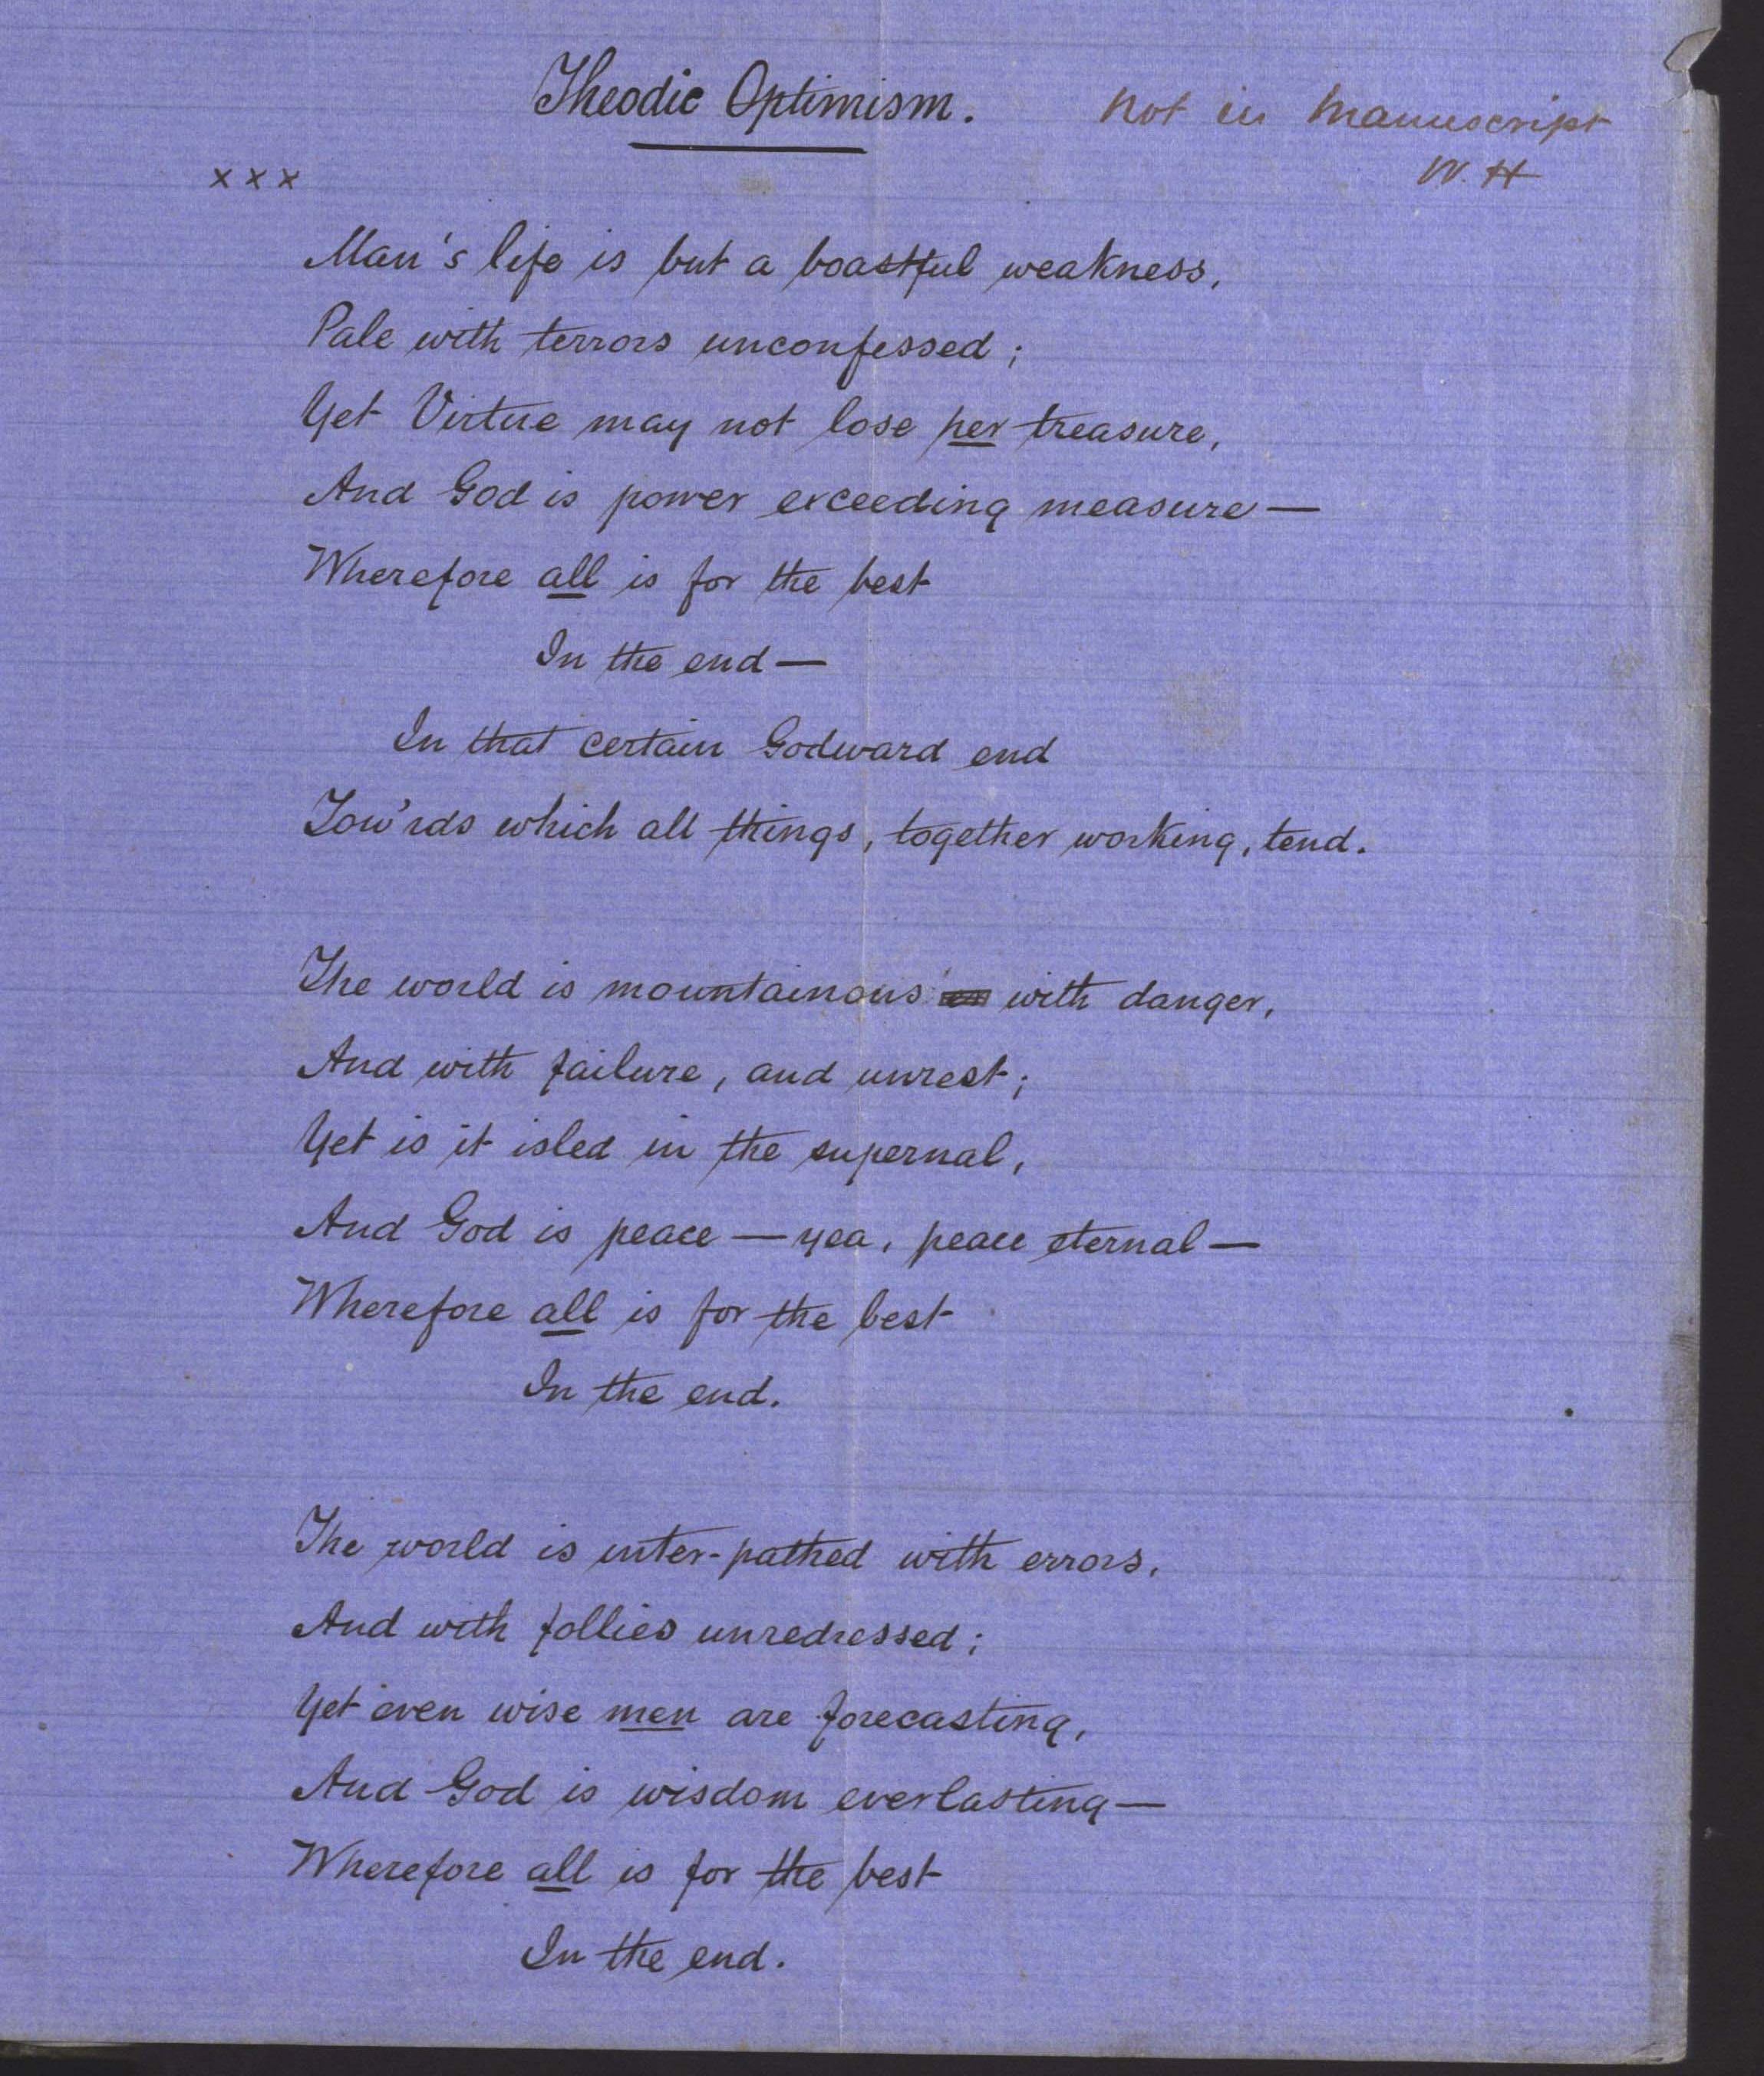 Theodic Optimism.
Not in Manuscript
W. H
x x x
Man's life is but a boastful weakness,
Pale with terrors unconfessed;
Yet Virtue may not lose her treasure,
And God is power exceeding measure—
Wherefore all is for the best
In the end—
In that certain Godward end
Tow'rds which all things, together working, tend.
The world is mountainous with danger,
And with failure, and unrest;
Yet is it isled in the supernal,
And God is peace—yea, peace eternal—
Wherefore all is for the best
In the end.
The world is inter-pathed with errors,
And with follies unredressed;
Yet even wise men are forecasting,
And God is wisdom everlasting—
Wherefore all is for the best
In the end.